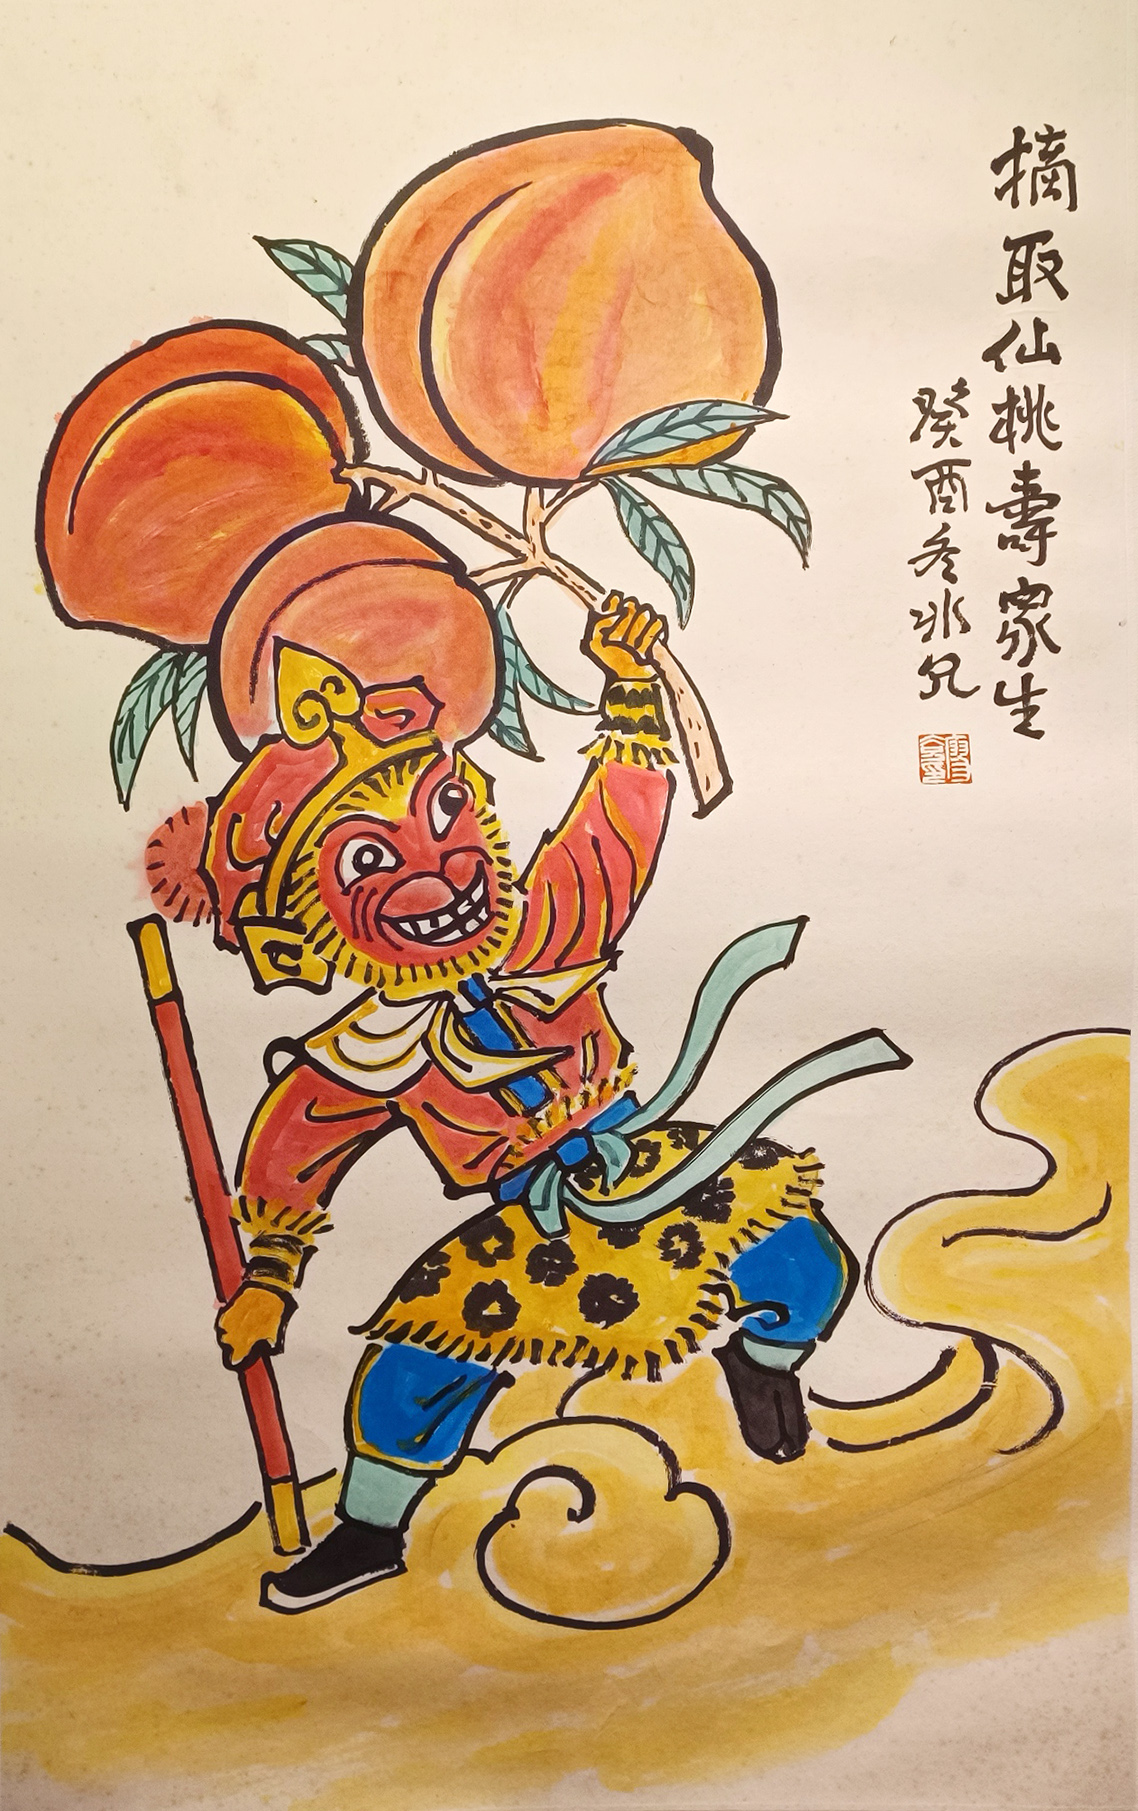 摘取仙桃壽眾生
癸酉冬冰兄